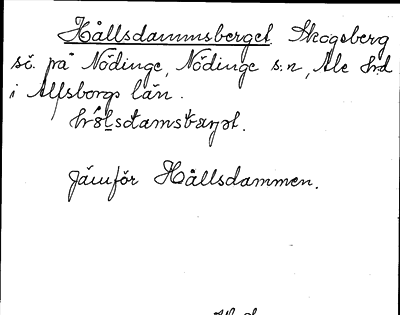 Hållsdammsberget. Skogsberg
sö. på Nödinge, Nödinge s:n, Ale hd
i Älfsborgs län.
Jämför Hållsdammen.